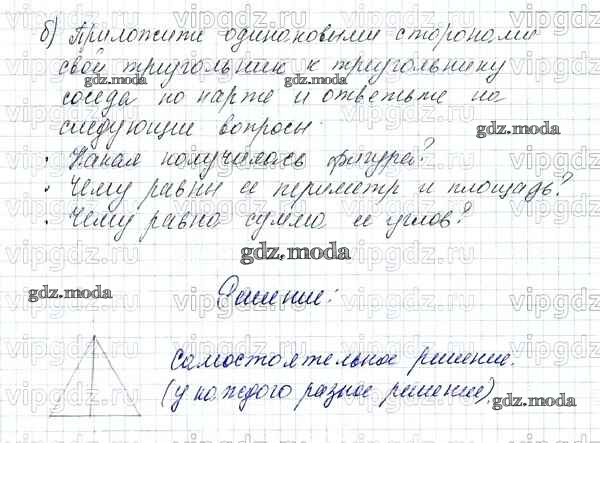 б) Приложите одинаковыми сторонами
свой треугольник к треугольнику
соседа по парте и ответьте на
следующие вопросы:
· Какая получилась фигура?
· Чему равны её периметр и площадь?
· Чему равна сумма её углов?
Решение:
Самостоятельное решение.
(у каждого разное решение).